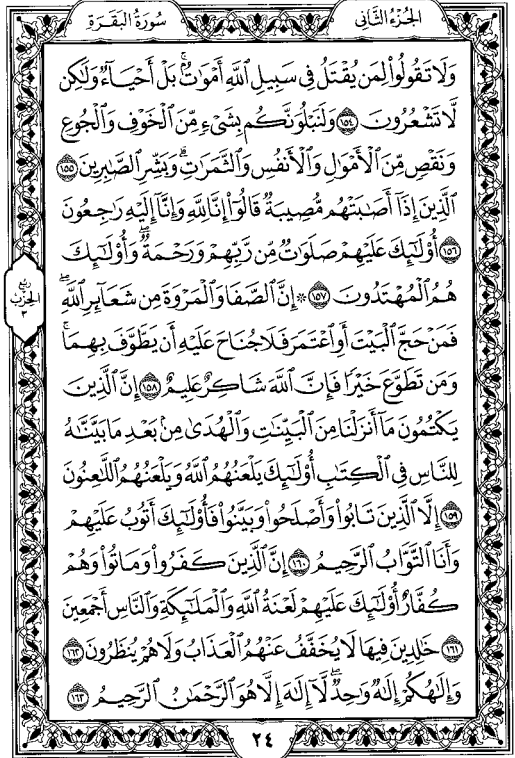 سُورَةُ البَقَرَةِ
الجُزْءُ الثَّانِى
وَلَا تَقُولُوا۟ لِمَن يُقْتَلُ فِى سَبِيلِ ٱللَّهِ أَمْوَٰتٌۢ ۚ بَلْ أَحْيَآءٌ وَلَٰكِن
لَّا تَشْعُرُونَ ١٥٤ وَلَنَبْلُوَنَّكُم بِشَىْءٍ مِّنَ ٱلْخَوْفِ وَٱلْجُوعِ
وَنَقْصٍ مِّنَ ٱلْأَمْوَٰلِ وَٱلْأَنفُسِ وَٱلثَّمَرَٰتِ ۗ وَبَشِّرِ ٱلصَّٰبِرِينَ ١٥٥
ٱلَّذِينَ إِذَآ أَصَٰبَتْهُم مُّصِيبَةٌ قَالُوٓا۟ إِنَّا لِلَّهِ وَإِنَّآ إِلَيْهِ رَٰجِعُونَ
١٥٦ أُو۟لَٰٓئِكَ عَلَيْهِمْ صَلَوَٰتٌ مِّن رَّبِّهِمْ وَرَحْمَةٌ ۖ وَأُو۟لَٰٓئِكَ
هُمُ ٱلْمُهْتَدُونَ ١٥٧ ۞ إِنَّ ٱلصَّفَا وَٱلْمَرْوَةَ مِن شَعَآئِرِ ٱللَّهِ ۖ
فَمَنْ حَجَّ ٱلْبَيْتَ أَوِ ٱعْتَمَرَ فَلَا جُنَاحَ عَلَيْهِ أَن يَطَّوَّفَ بِهِمَا ۚ
وَمَن تَطَوَّعَ خَيْرًا فَإِنَّ ٱللَّهَ شَاكِرٌ عَلِيمٌ ١٥٨ إِنَّ ٱلَّذِينَ
يَكْتُمُونَ مَآ أَنزَلْنَا مِنَ ٱلْبَيِّنَٰتِ وَٱلْهُدَىٰ مِنۢ بَعْدِ مَا بَيَّنَّٰهُ
لِلنَّاسِ فِى ٱلْكِتَٰبِ أُو۟لَٰٓئِكَ يَلْعَنُهُمُ ٱللَّهُ وَيَلْعَنُهُمُ ٱللَّٰعِنُونَ
١٥٩ إِلَّا ٱلَّذِينَ تَابُوا۟ وَأَصْلَحُوا۟ وَبَيَّنُوا۟ فَأُو۟لَٰٓئِكَ أَتُوبُ عَلَيْهِمْ
وَأَنَا ٱلتَّوَّابُ ٱلرَّحِيمُ ١٦٠ إِنَّ ٱلَّذِينَ كَفَرُوا۟ وَمَاتُوا۟ وَهُمْ
كُفَّارٌ أُو۟لَٰٓئِكَ عَلَيْهِمْ لَعْنَةُ ٱللَّهِ وَٱلْمَلَٰٓئِكَةِ وَٱلنَّاسِ أَجْمَعِينَ
١٦١ خَٰلِدِينَ فِيهَا لَا يُخَفَّفُ عَنْهُمُ ٱلْعَذَابُ وَلَا هُمْ يُنظَرُونَ ١٦٢
وَإِلَٰهُكُمْ إِلَٰهٌ وَٰحِدٌ ۖ لَّآ إِلَٰهَ إِلَّا هُوَ ٱلرَّحْمَٰنُ ٱلرَّحِيمُ ١٦٣
ربع
الحزب
٣
٢٤